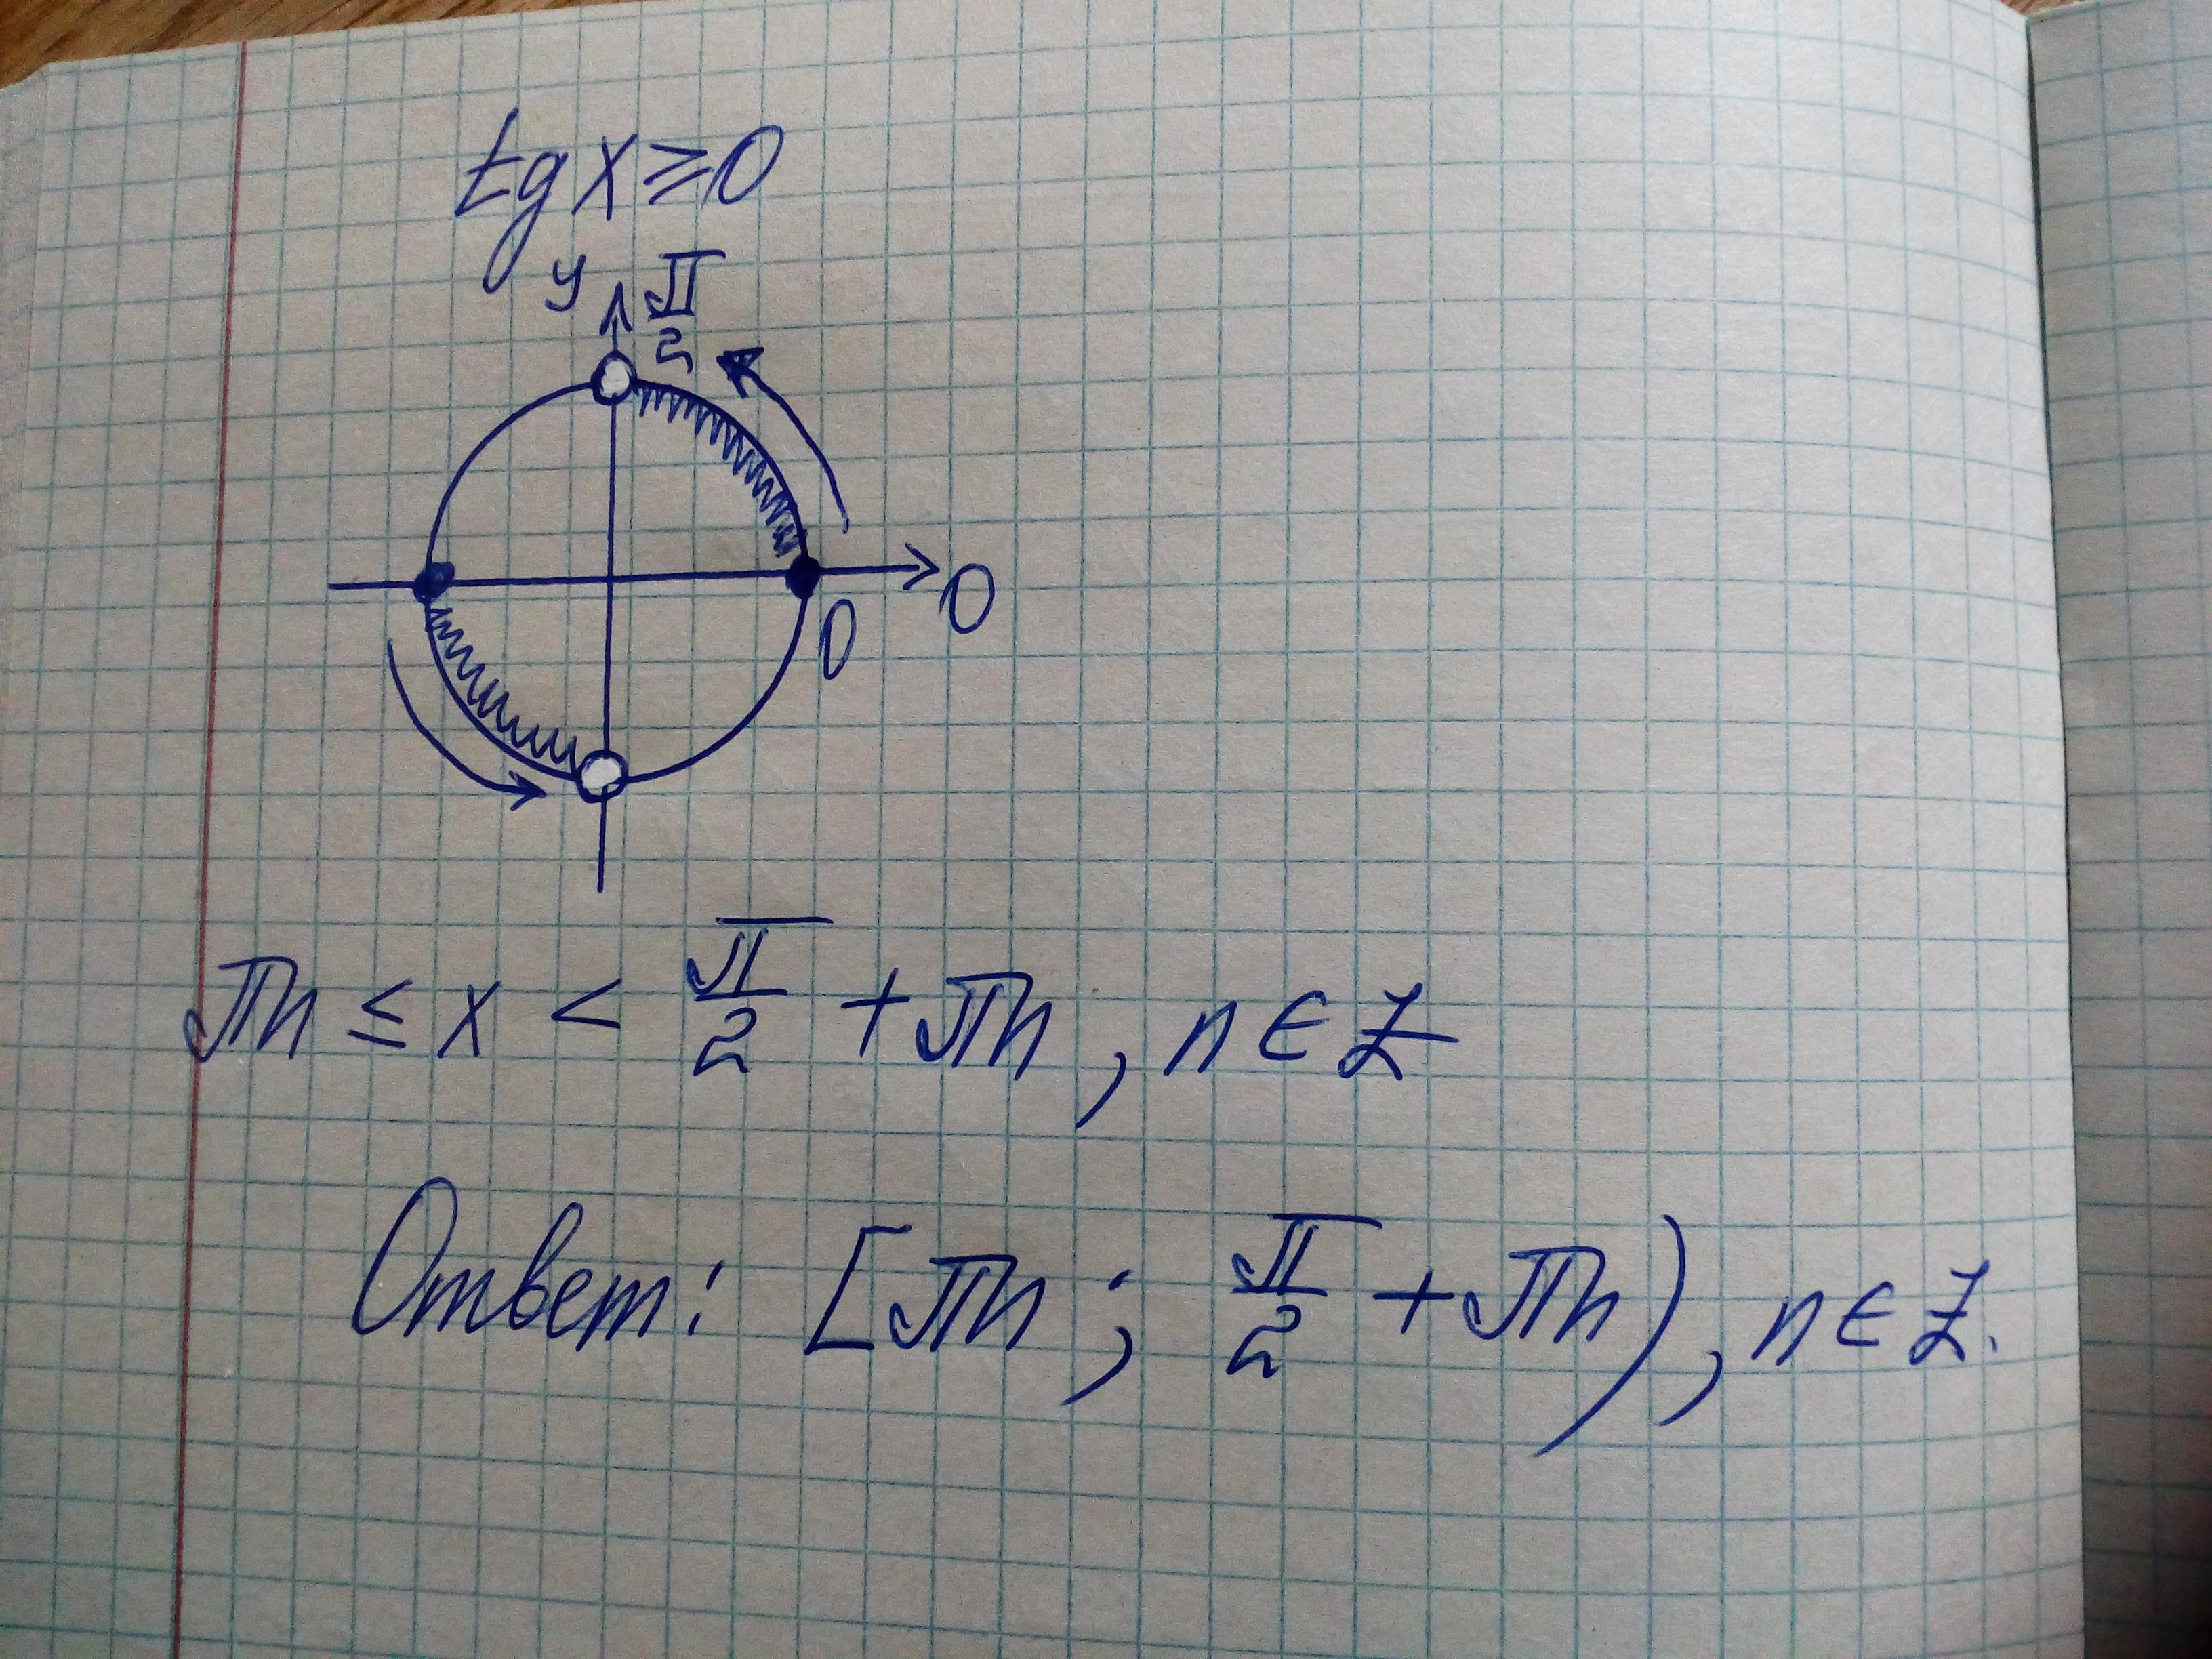 tg x ≥ 0
y π/2
0
0
πn ≤ x < π/2 + πn, n ∈ Z
Ответ: [πn; π/2 + πn), n ∈ Z.